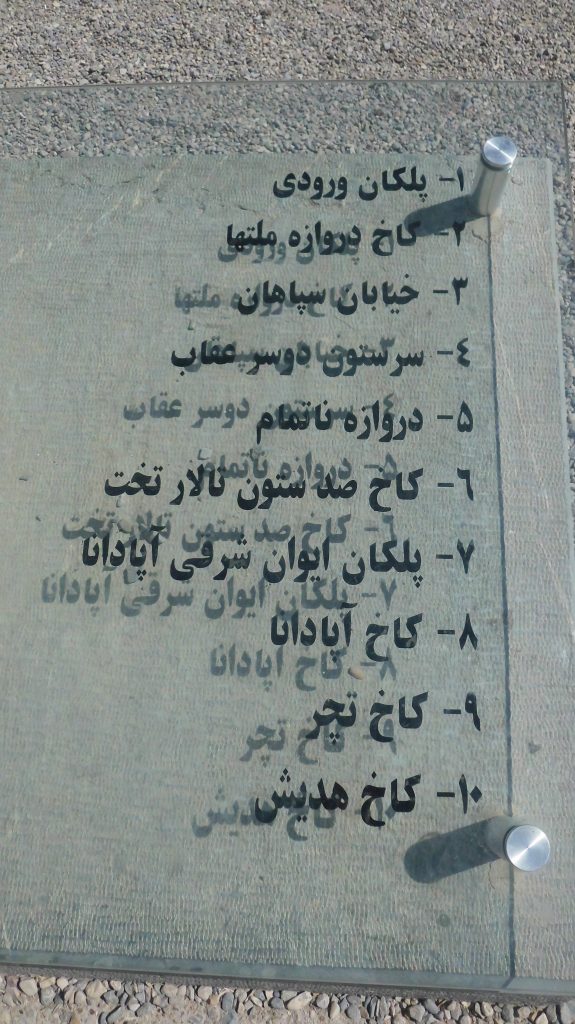 ۱- پلکان ورودی
۲- کاخ دروازه ملتها
۳- خیابان سپاهان
٤- سرستون دوسر عقاب
۵- دروازه ناتمام
٦- کاخ صد ستون تالار تخت
۷- پلکان ایوان شرقی آپادانا
۸- کاخ آپادانا
۹- کاخ تچر
۱۰- کاخ هدیش